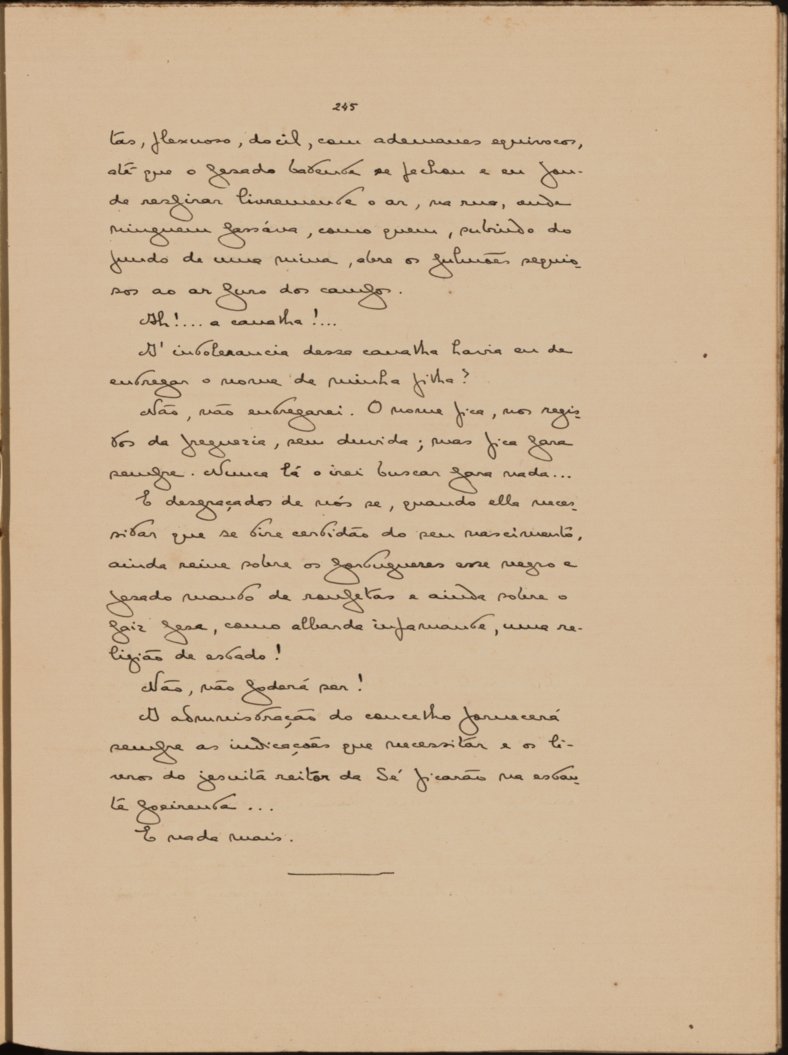 245
tas, flexuoso, docil, com ademanes equivocos,
até que o pesado batente se fechou e eu pou-
de respirar livremente o ar, na rua, onde
ninguem passáva, como quem, subindo do
fundo de uma mina, abre os pulmões sequio-
sos ao ar puro dos campos.
Ah!... a canalha!...
A' intolerancia dessa canalha havia eu de
entregar o nome de minha filha?
Não, não entregarei. O nome fica, nos regis-
tos da freguezia, sem duvida; mas fica para
sempre. Nunca lá o irei buscar para nada...
E desgraçados de nós se, quando ella neces-
sitar que se tire certidão do seu nascimento,
ainda reine sobre os portuguezes esse negro e
pesado manto de roupetas e ainda sobre o
paiz pese, como albarda infamante, uma re-
ligião de estado!
Não, não poderá ser!
A administração do concelho fornecerá
sempre as indicações que necessitár e os li-
vros do jesuitá reitor da Sé ficarão na estan-
te poeirenta...
E nada mais.